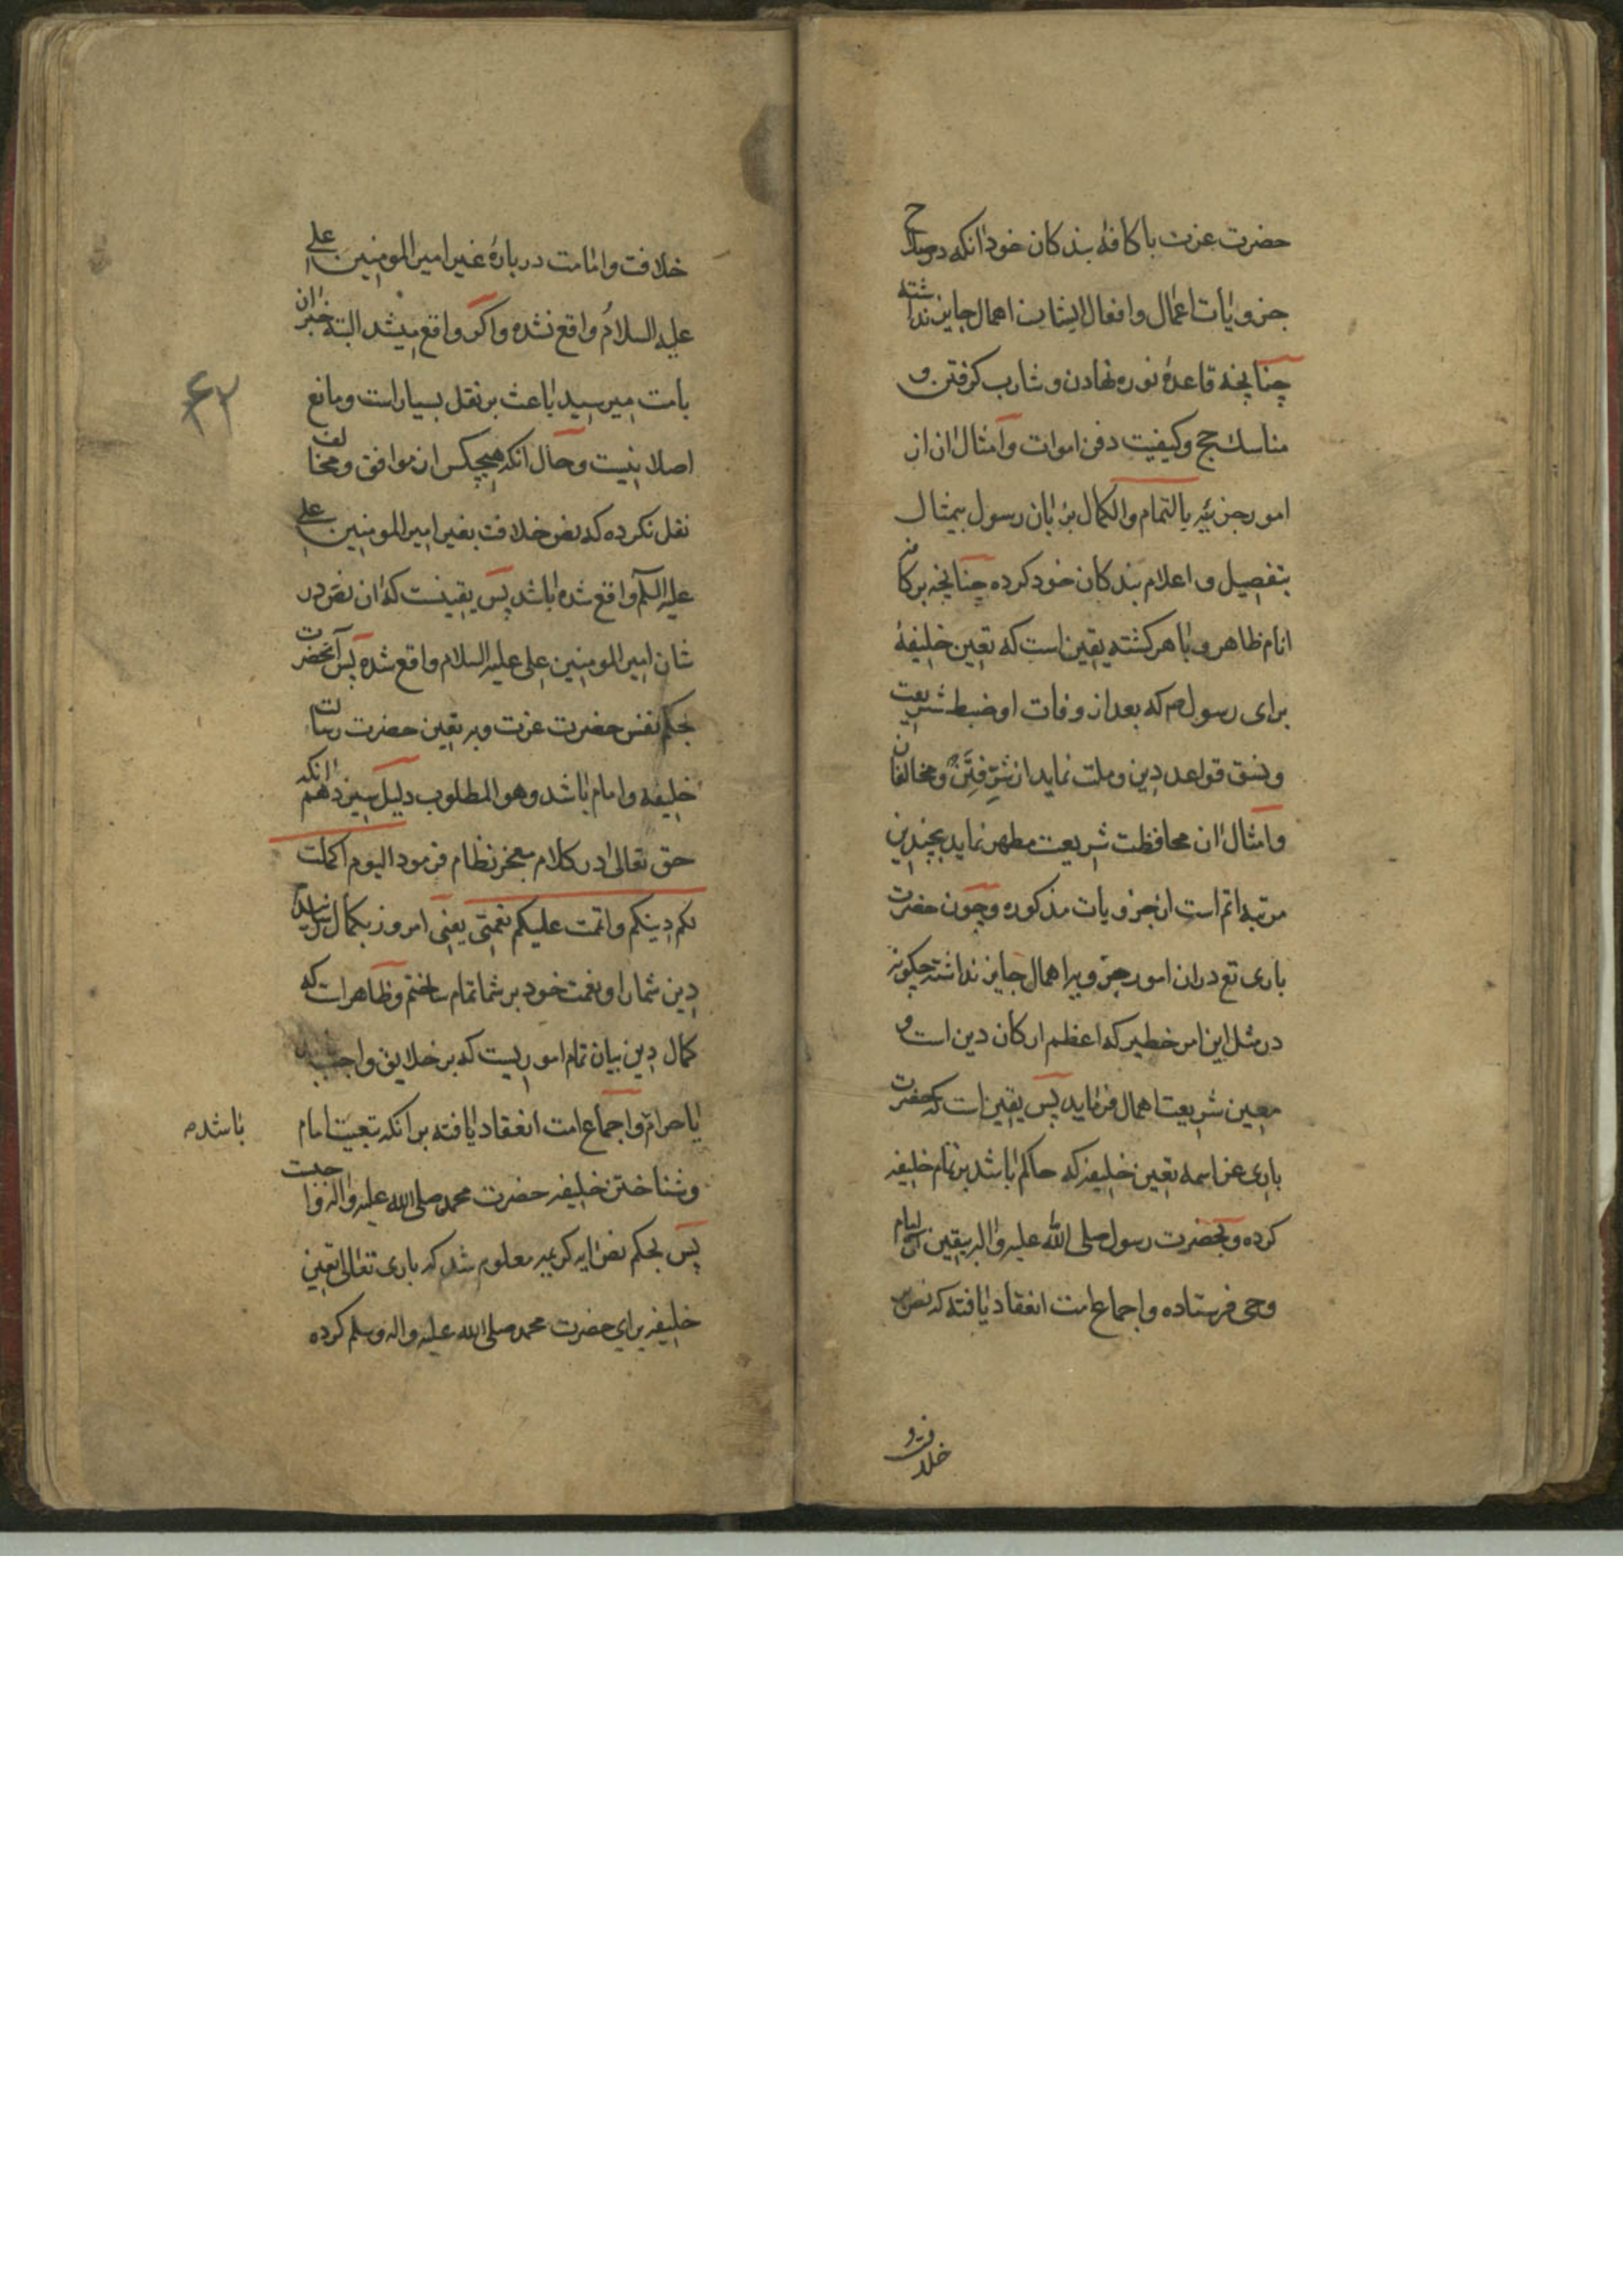 حضرت عزت با كافهٔ بندكان خود انكه در صلاح
جزویات اعمال و افعال ایشان اهمال جایز نداشته
چنانچه قاعدهٔ نوره نهادن و شارب كرفتن و
مناسك حج و كیفیت دفن اموات و امثال ان از
امور جزئیه بالتمام و الكمال بر زبان رسول بیمثال
بتفصیل و اعلام بندكان خود كرده چنانچه بر كافهٔ
انام ظاهر و باهر كشته یقین است كه تعین خلیفهٔ
برای رسول صم كه بعد از وفات او ضبط شریعت
و نسق قواعد دین و ملت نماید از شر فتن و مخالفان
و امثال ان محافظت شریعت مطهر نماید بچندین
مرتبه اتم است از جزویات مذكوره و چون حضرت
باری تع در ان امور جزویه اهمال جایز نداشته چكونه
در مثل این امر خطیر كه اعظم اركان دین است و
معین شریعت اهمال فرماید پس یقین است كه حضرت
باری عز اسمه تعین خلیفه كه حاكم باشد بر تمام خلیفه
كرده و بحضرت رسول صلی الله علیه و اله بیقین
وحی فرستاده و اجماع امت انعقاد یافته كه نص بر
خلافت و
خلافت و امامت در بارهٔ غیر امیر المومنین علی
علیه السلام واقع نشده و اكر واقع میشد البته خبر ان
بامت میرسید باعث بر نقل بسیار است و مانع
اصلا نیست و حال انكه هیچكس از موافق و مخالف
نقل نكرده كه نص خلافت بغیر امیر المومنین علی
علیه السلم واقع شده باشد پس یقینست كه ان نص در
شان امیر المومنین علی علیه السلام واقع شده پس آنحضرت
بحكم نفس حضرت عزت و بر تعین حضرت رسالت
خلیفه و امام باشد و هو المطلوب دلیل سیزدهم انكه
حق تعالی در كلام معجز نظام فرمود الیوم اكملت
لكم دینكم و اتممت علیكم نعمتی یعنی امروز بكمال رسانیدم
دین شما را و نعمت خود بر شما تمام ساختم و ظاهر است كه
كمال دین بیان تمام اموریست كه بر خلایق واجب
یا حرام و اجماع امت انعقاد یافته بر انكه تبعیت امام
باشد
و شناختن خلیفه حضرت محمد صلی الله علیه و اله واجبست
پس بحكم نص ایه كریمه معلوم شد كه باری تعالی تعین
خلیفه برای حضرت محمد صلی الله علیه و اله وسلم كرده